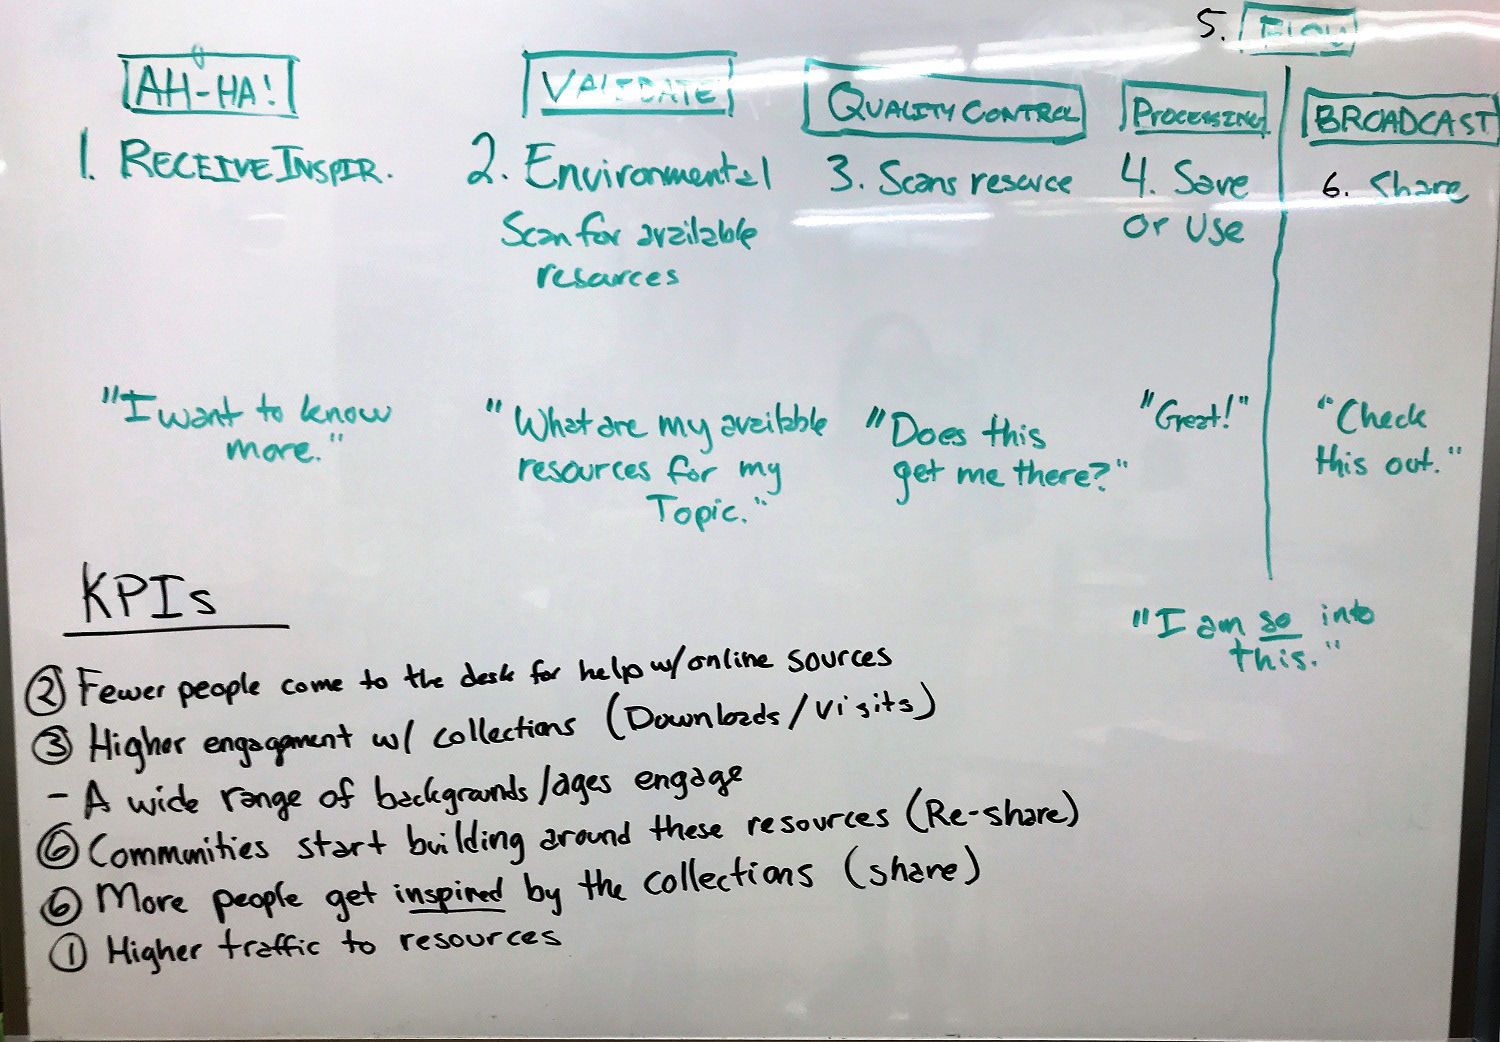 5. FLOW
AH-HA!
1. RECEIVE INSPIR.
"I want to know
more."
VALIDATE
2. Environmental
Scan for available
resources
"What are my available
resources for my
Topic."
QUALITY CONTROL
3. Scans resource
"Does this
get me there?"
PROCESSING
4. Save
or Use
"Great!"
BROADCAST
6. Share
"Check
this out."
"I am so into
this."
KPIs
② Fewer people come to the desk for help w/ online sources
③ Higher engagement w/ collections (Downloads/visits)
- A wide range of backgrounds/ages engage
⑥ Communities start building around these resources (Re-share)
⑥ More people get inspired by the collections (share)
① Higher traffic to resources